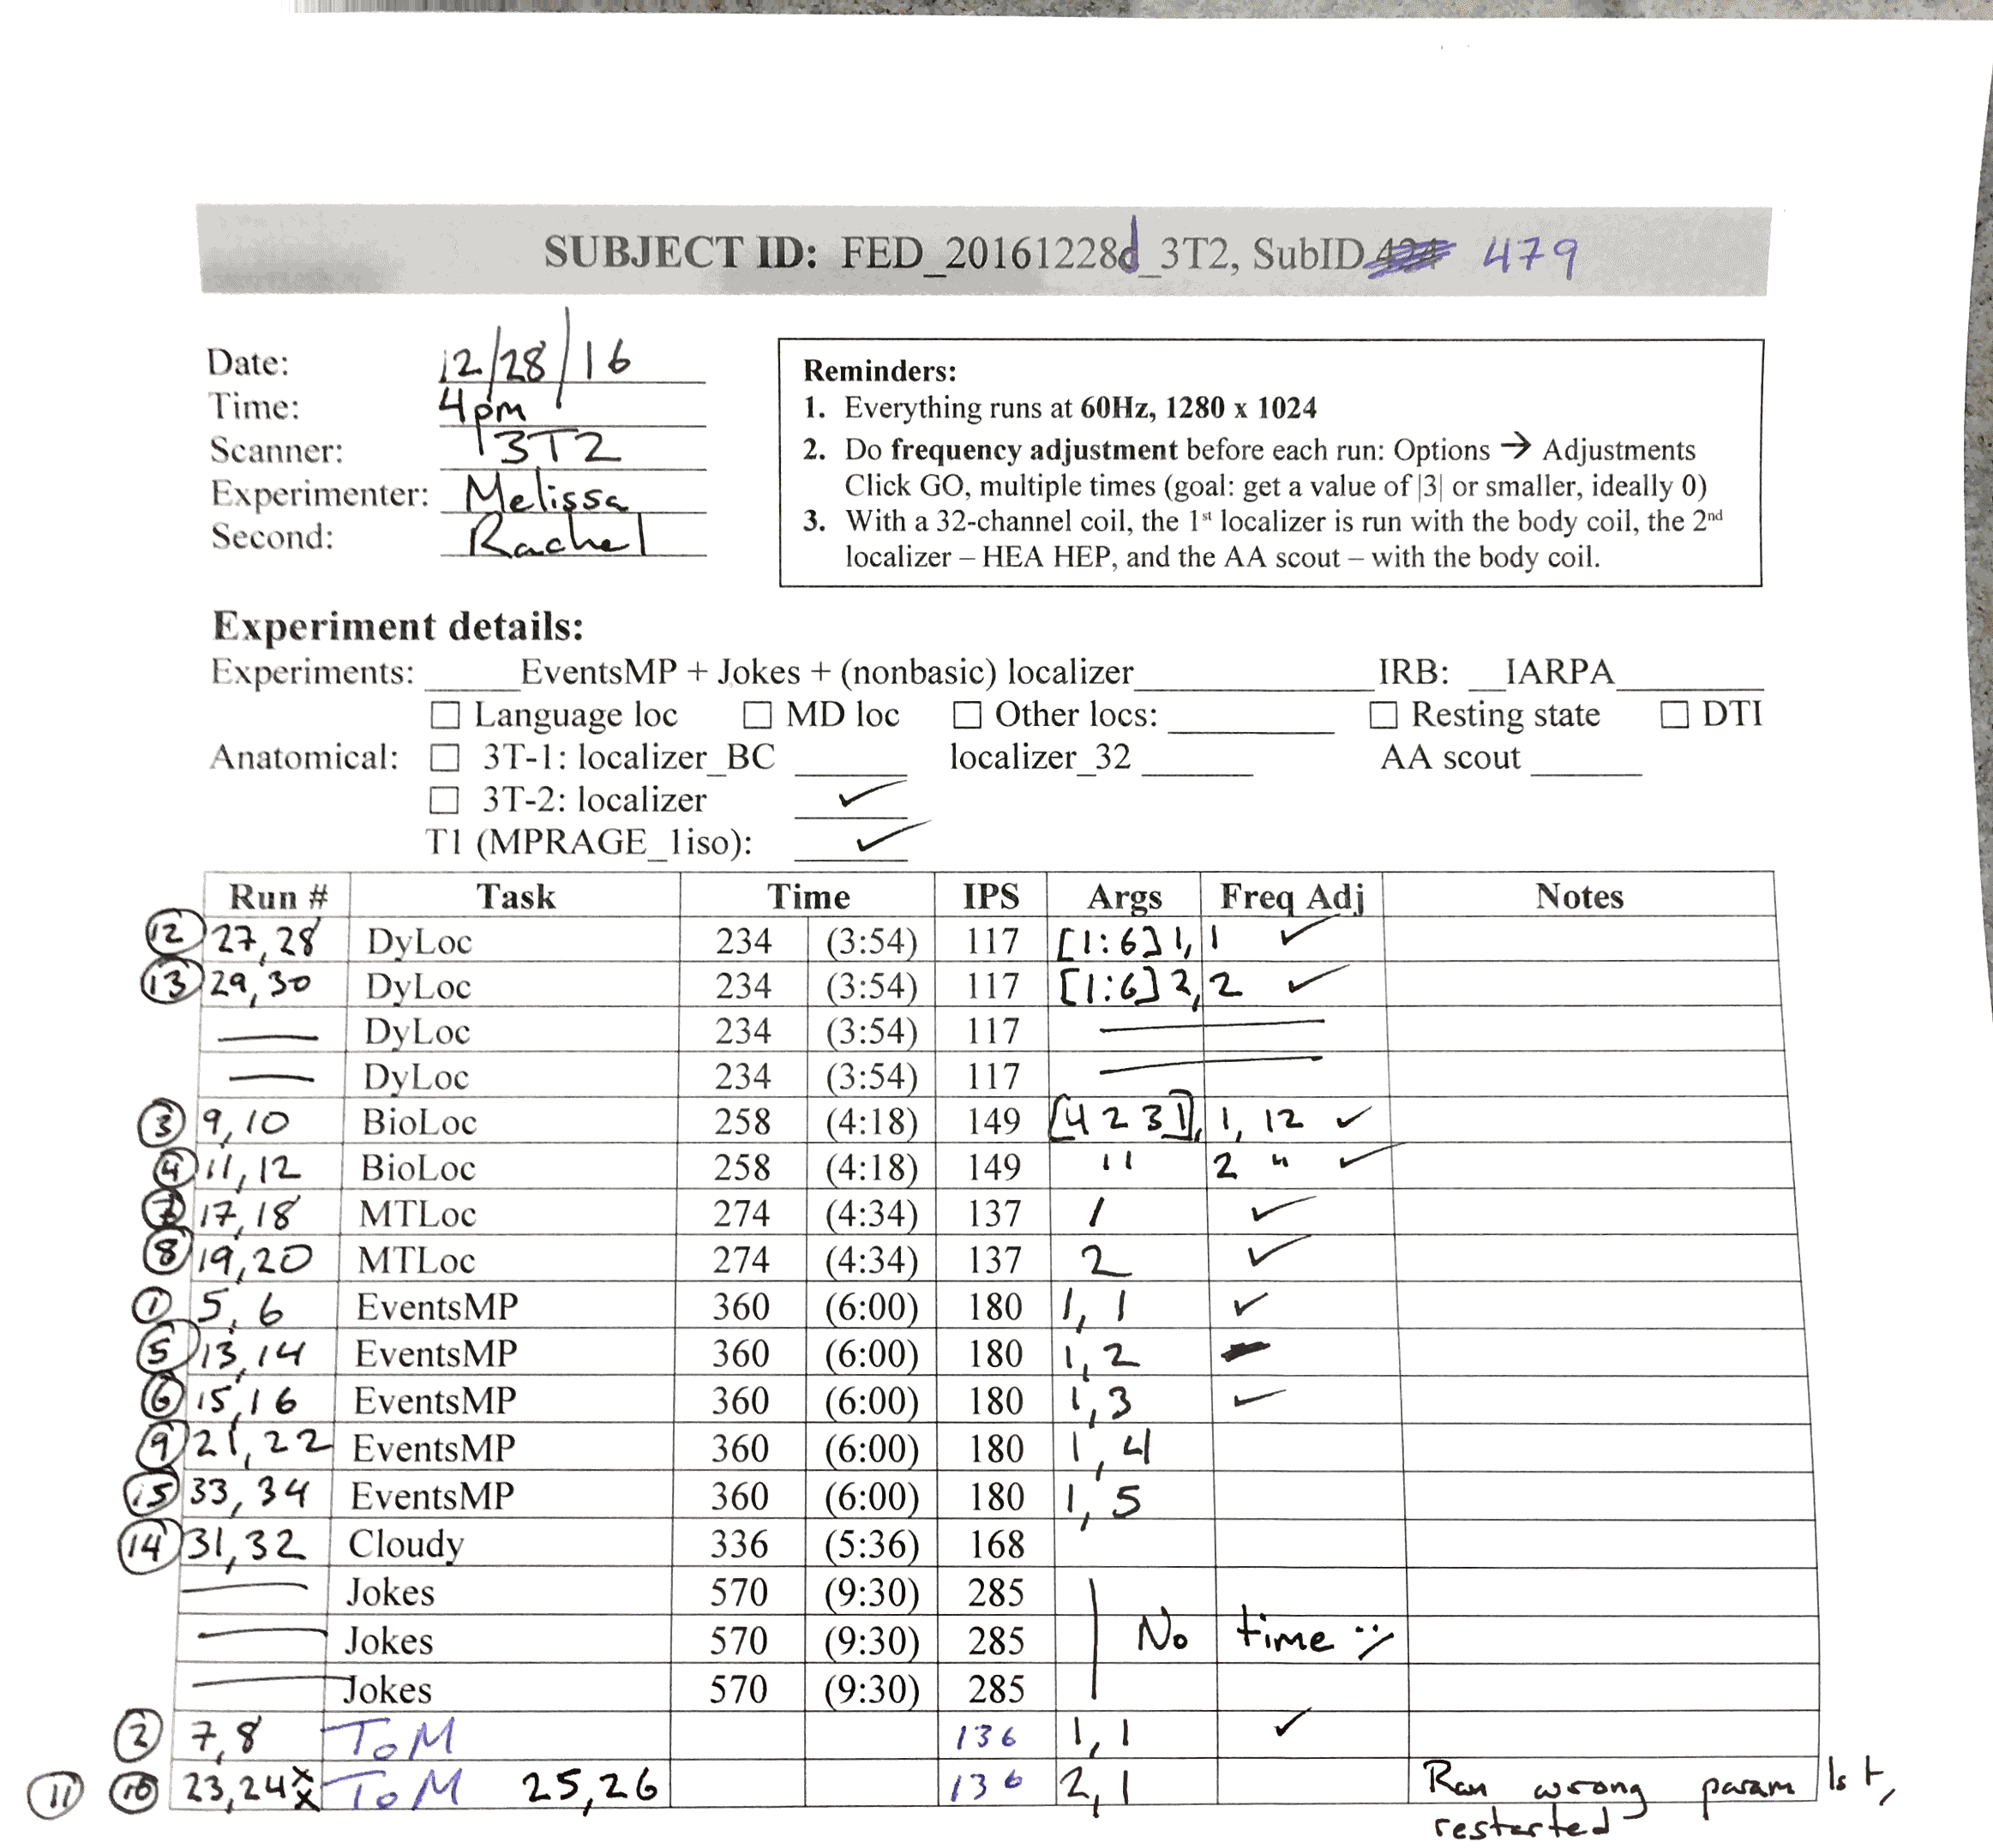 SUBJECT ID: FED_20161228d_3T2, SubID 479
Date: 12/28/16
Time: 4pm
Scanner: 3T2
Experimenter: Melissa
Second: Rachel
Reminders:
1. Everything runs at 60Hz, 1280 x 1024
2. Do frequency adjustment before each run: Options → Adjustments
Click GO, multiple times (goal: get a value of |3| or smaller, ideally 0)
3. With a 32-channel coil, the 1st localizer is run with the body coil, the 2nd
localizer – HEA HEP, and the AA scout – with the body coil.
Experiment details:
Experiments: _____EventsMP + Jokes + (nonbasic) localizer_____________IRB: __IARPA________
☐ Language loc ☐ MD loc ☐ Other locs: _________ ☐ Resting state ☐ DTI
Anatomical: ☐ 3T-1: localizer_BC ______ localizer_32 ______ AA scout ______
☐ 3T-2: localizer ✓
T1 (MPRAGE_1iso): ✓
Run # Task Time IPS Args Freq Adj Notes
12 27,28 DyLoc 234 (3:54) 117 [1:6] 1, 1 ✓
13 29,30 DyLoc 234 (3:54) 117 [1:6] 2, 2 ✓
— DyLoc 234 (3:54) 117 —
— DyLoc 234 (3:54) 117 —
3 9,10 BioLoc 258 (4:18) 149 [4 2 3 1], 1, 12 ✓
4 11,12 BioLoc 258 (4:18) 149 " 2 " ✓
7 17,18 MTLoc 274 (4:34) 137 1 ✓
8 19,20 MTLoc 274 (4:34) 137 2 ✓
1 5,6 EventsMP 360 (6:00) 180 1, 1 ✓
5 13,14 EventsMP 360 (6:00) 180 1,2
6 15,16 EventsMP 360 (6:00) 180 1,3 ✓
9 21,22 EventsMP 360 (6:00) 180 1,4
15 33,34 EventsMP 360 (6:00) 180 1,5
14 31,32 Cloudy 336 (5:36) 168
— Jokes 570 (9:30) 285
— Jokes 570 (9:30) 285 No time :/
— Jokes 570 (9:30) 285
2 7,8 ToM 136 1, 1 ✓
11 10 23,24 xx ToM 25,26 136 2,1 Ran wrong param 1st,
restarted